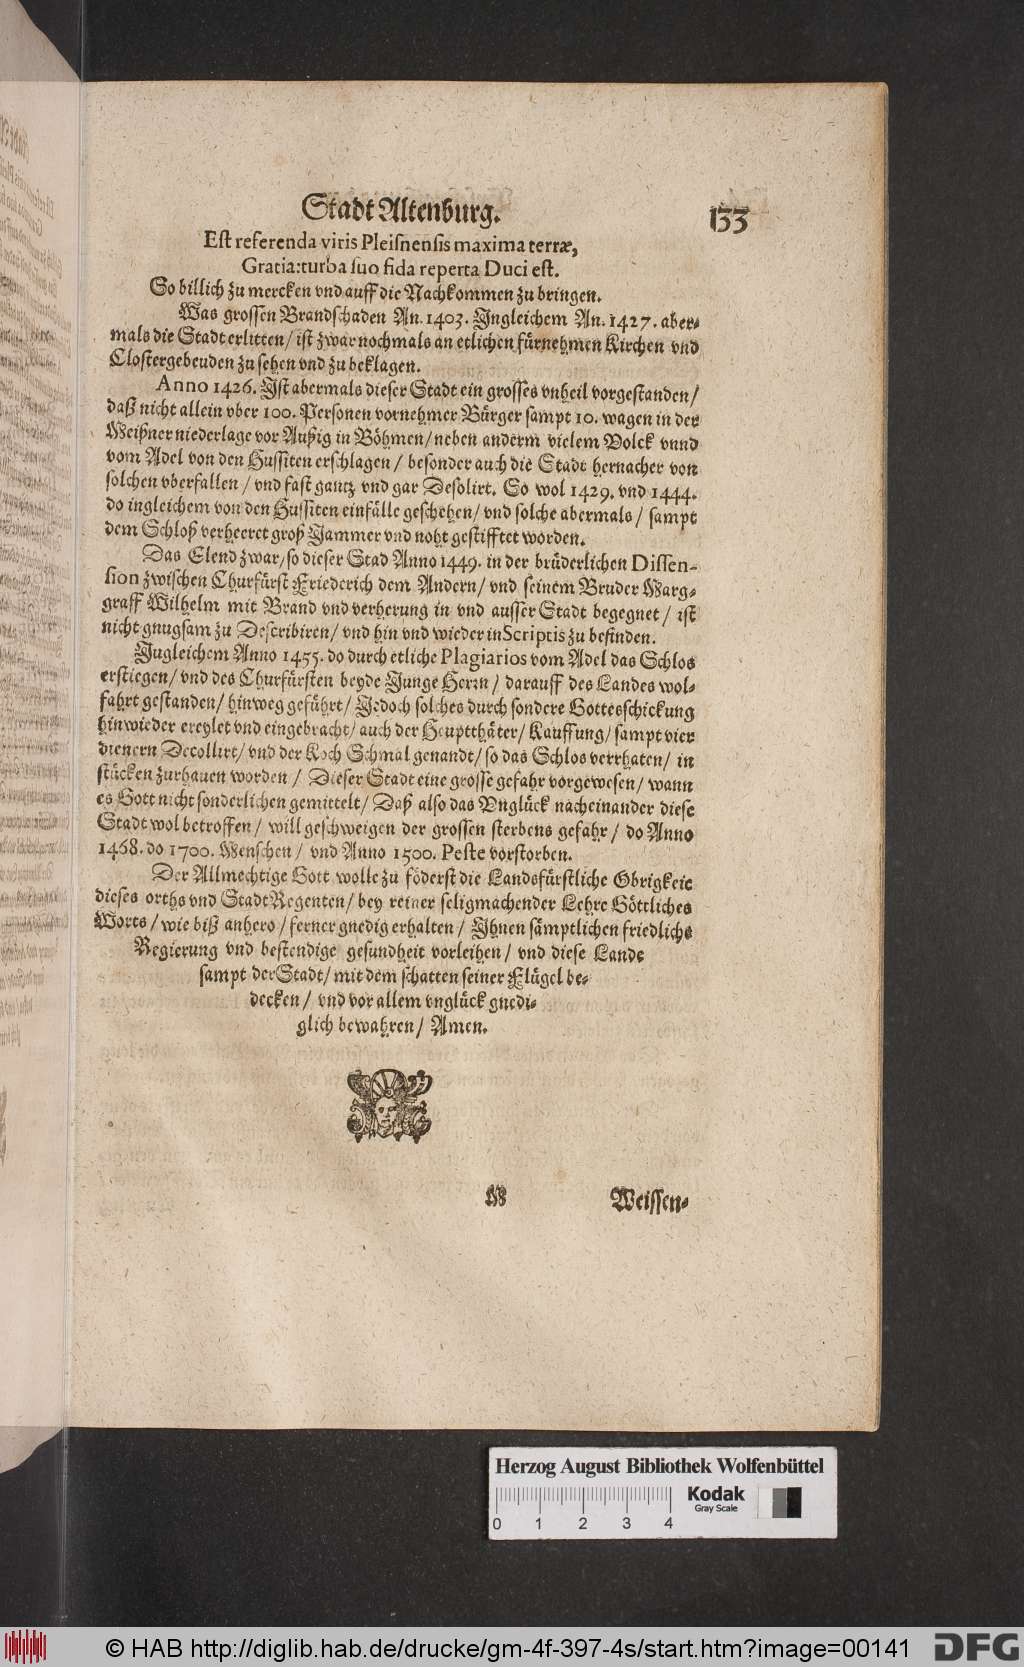 Stadt Altenburg.
133
Est referenda viris Pleisnensis maxima terræ,
Gratia: turba suo fida reperta Duci est.
So billich zu mercken vnd auff die Nachkommen zu bringen.
Was grossen Brandschaden An. 1403. Ingleichem An. 1427. aber-
mals die Stadt erlitten / ist zwar nochmals an etlichen fürnehmen Kirchen vnd
Clostergebeuden zu sehen vnd zu beklagen.
Anno 1426. Ist abermals dieser Stadt ein grosses vnheil vorgestanden /
daß nicht allein vber 100. Personen vornehmer Bürger sampt 10. wagen in der
Meißner niederlage vor Außig in Böhmen / neben anderm vielem Volck vnnd
vom Adel von den Hussiten erschlagen / besonder auch die Stadt hernacher von
solchen vberfallen / vnd fast gantz vnd gar Desolirt. So wol 1429. vnd 1444.
do ingleichem von den Hussiten einfälle geschehen / vnd solche abermals / sampt
dem Schloß verheeret groß Jammer vnd noht gestifftet worden.
Das Elend zwar / so dieser Stad Anno 1449. in der brüderlichen Dissen-
sion zwischen Churfürst Friederich dem Andern / vnd seinem Bruder Marg-
graff Wilhelm mit Brand vnd verherung in vnd ausser Stadt begegnet / ist
nicht gnugsam zu Describiren / vnd hin vnd wieder in Scriptis zu befinden.
Jugleichem Anno 1455. do durch etliche Plagiarios vom Adel das Schlos
erstiegen / vnd des Churfürsten beyde Junge Herrn / darauff des Landes wol-
fahrt gestanden / hinweg geführt / Jedoch solches durch sondere Gottesschickung
hinwieder ereylet vnd eingebracht / auch der Heuptthäter / Kauffung / sampt vier
dienern Decollirt / vnd der Koch Schmal genandt / so das Schlos verrhaten / in
stücken zurhauen worden / Dieser Stadt eine grosse gefahr vorgewesen / wann
es Gott nicht sonderlichen gemittelt / Daß also das Vnglück nacheinander diese
Stadt wol betroffen / will geschweigen der grossen sterbens gefahr / do Anno
1468. do 1700. Menschen / vnd Anno 1500. Peste vorstorben.
Der Allmechtige Gott wolle zu föderst die Landsfürstliche Obrigkeit
dieses orths vnd Stadt Regenten / bey reiner seligmachender Lehre Göttliches
Worts / wie biß anhero / ferner gnedig erhalten / Ihnen sämptlichen friedliche
Regierung vnd bestendige gesundheit vorleihen / vnd diese Lande
sampt der Stadt / mit dem schatten seiner Flügel be-
decken / vnd vor allem vnglück gnedi-
glich bewahren / Amen.
M
Weissen-
Herzog August Bibliothek Wolfenbüttel
Kodak
Gray Scale
0 1 2 3 4
© HAB http://diglib.hab.de/drucke/gm-4f-397-4s/start.htm?image=00141
DFG